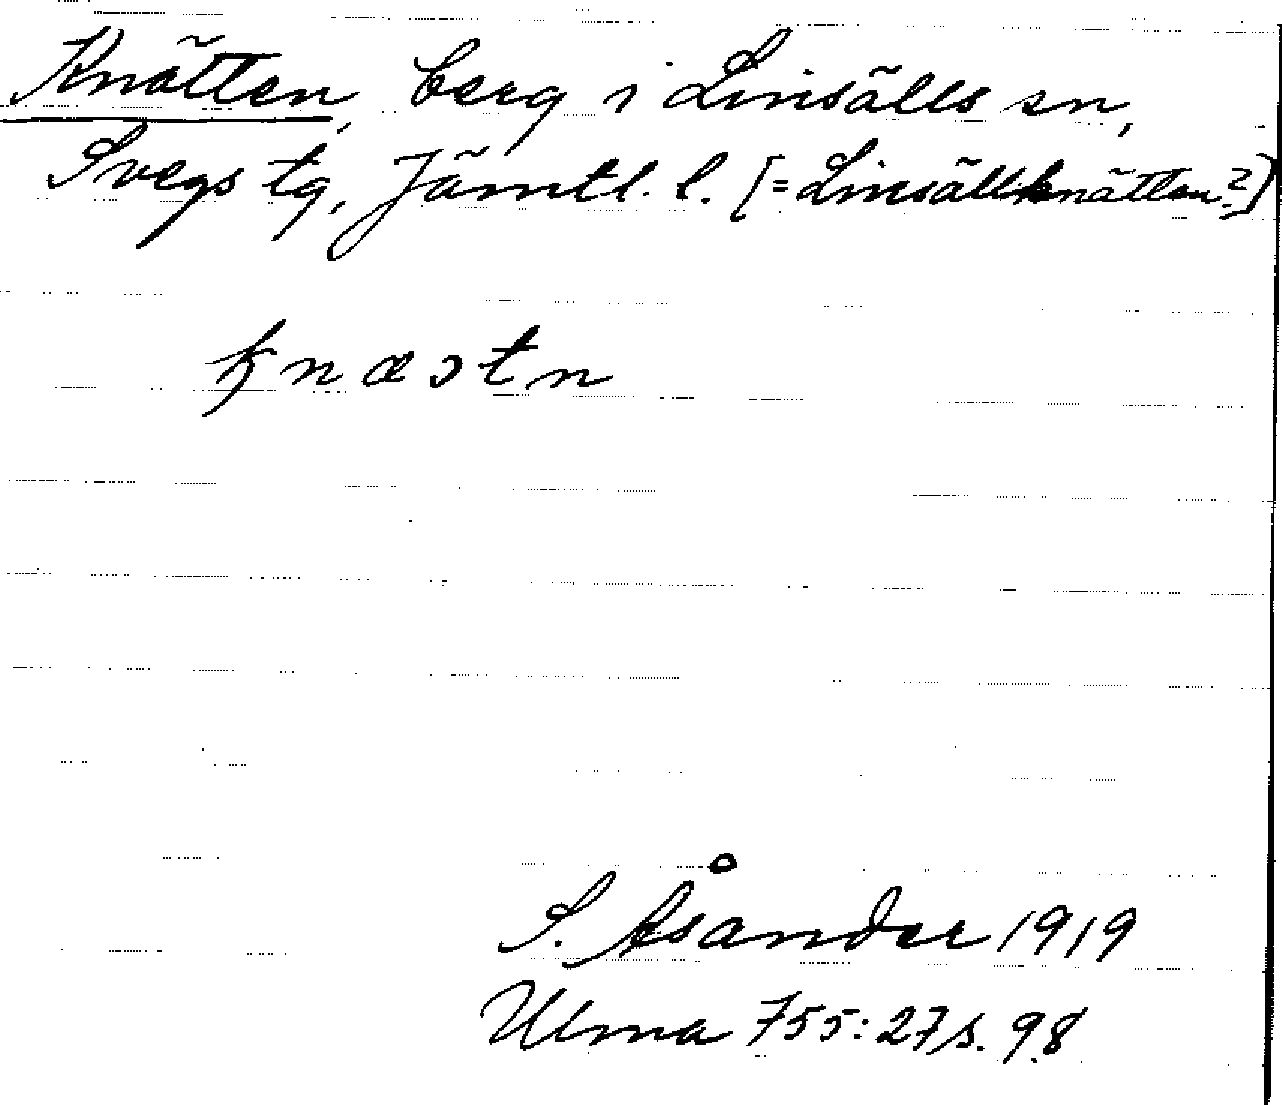 Knätten, berg i Linsälls sn,
Svegs tg, Jämtl. l. (= Linsällknätten?)
knæɔtn
S. Åsander 1919
Ulma 755:27 s. 98